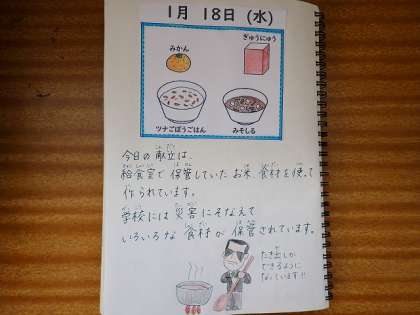 1月 18日 (水)
ぎゅうにゅう
みかん
ツナごぼうごはん
みそしる
今日の献立は、
給食室で保管していたお米、食材を使って
作られています。
学校には災害にそなえて
いろいろな食材が保管されています。
たき出しが
できるように
なっています!!